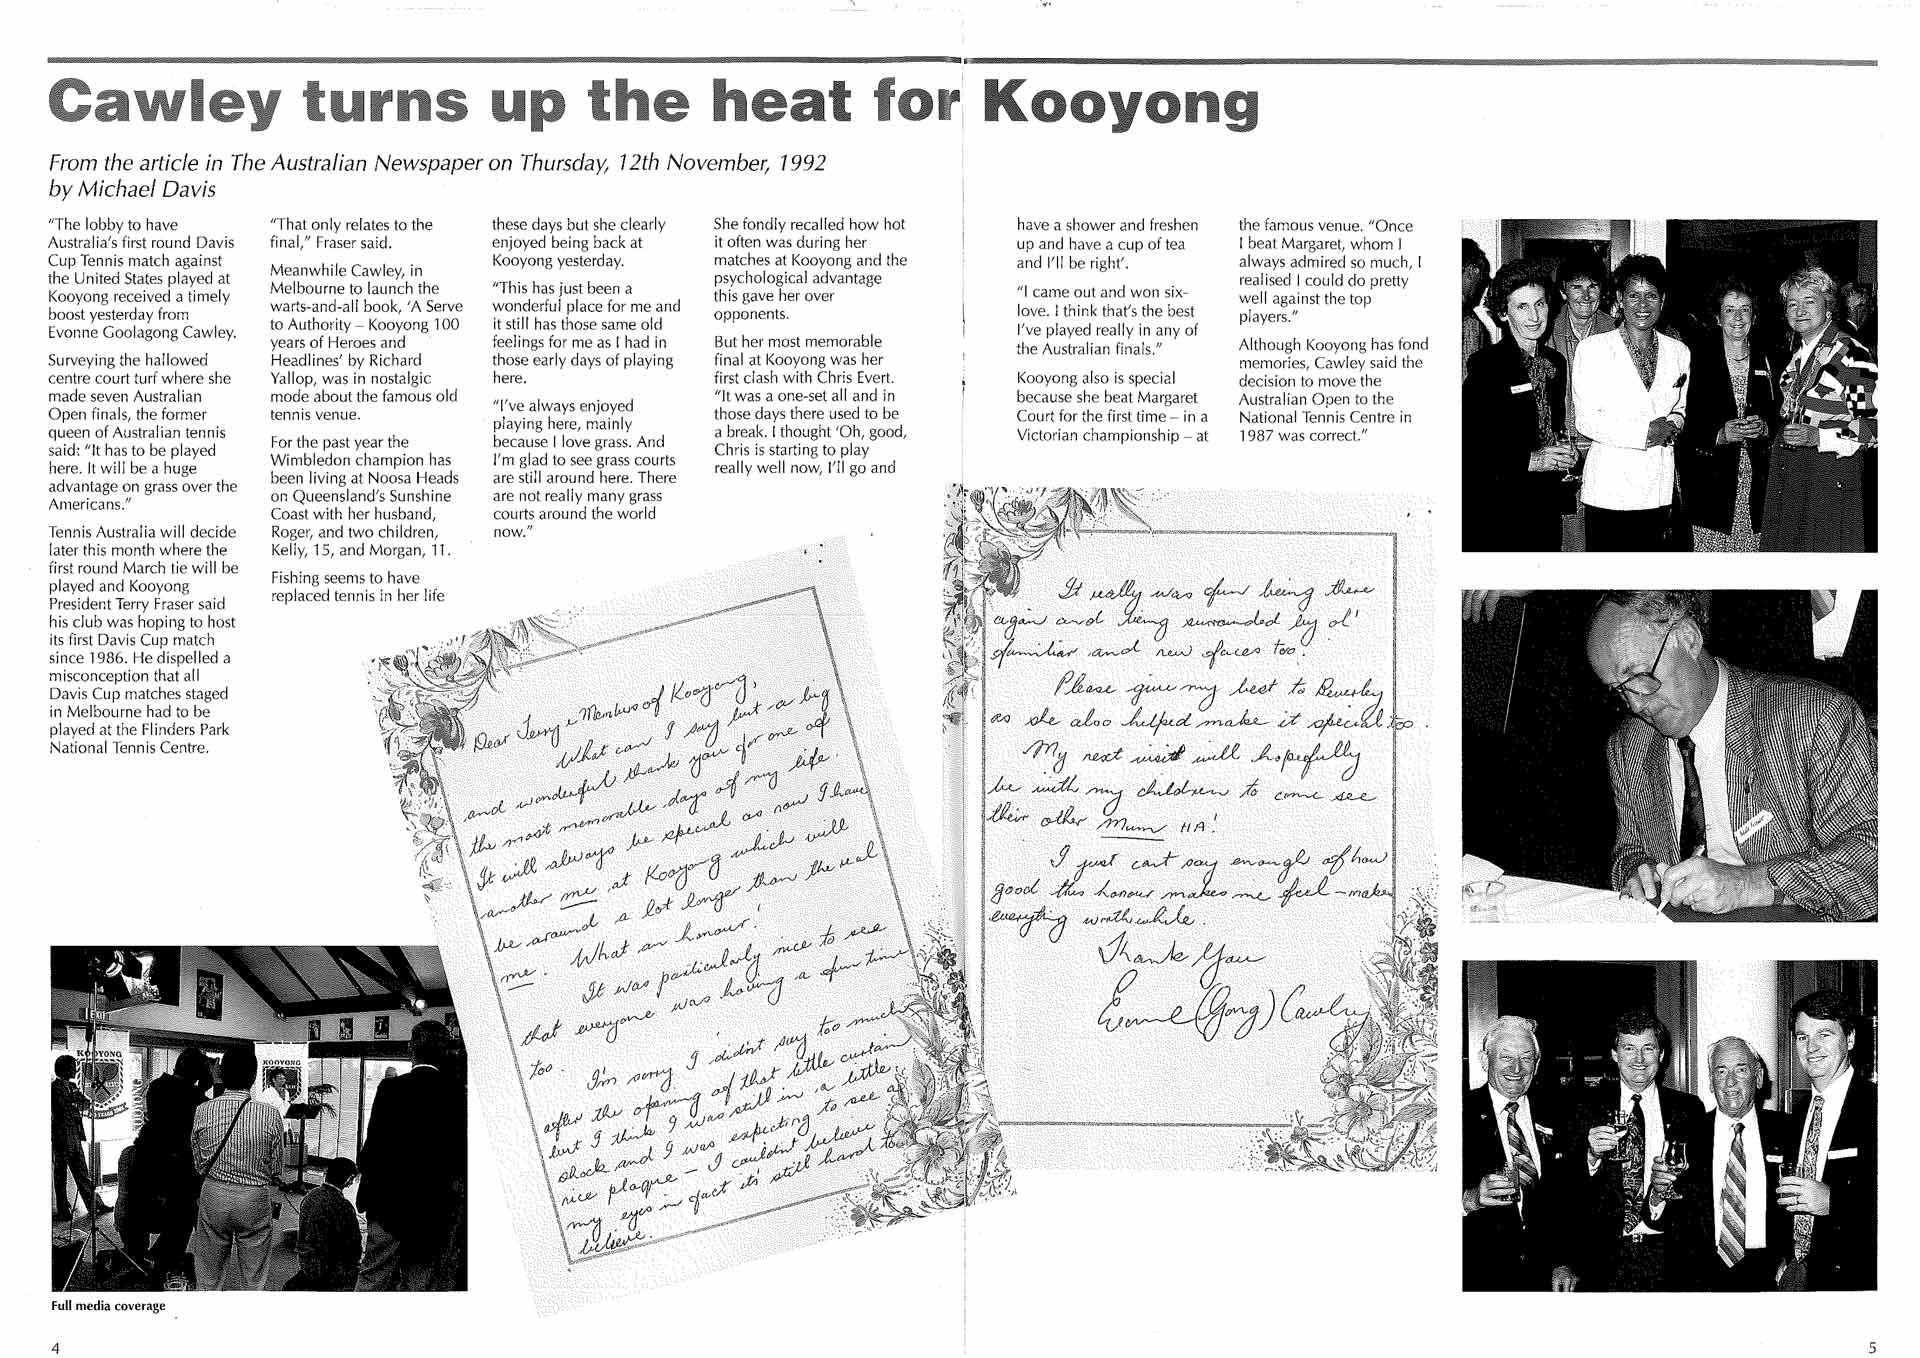 Cawley turns up the heat for Kooyong
From the article in The Australian Newspaper on Thursday, 12th November, 1992
by Michael Davis
"The lobby to have
Australia's first round Davis
Cup Tennis match against
the United States played at
Kooyong received a timely
boost yesterday from
Evonne Goolagong Cawley.
Surveying the hallowed
centre court turf where she
made seven Australian
Open finals, the former
queen of Australian tennis
said: "It has to be played
here. It will be a huge
advantage on grass over the
Americans."
Tennis Australia will decide
later this month where the
first round March tie will be
played and Kooyong
President Terry Fraser said
his club was hoping to host
its first Davis Cup match
since 1986. He dispelled a
misconception that all
Davis Cup matches staged
in Melbourne had to be
played at the Flinders Park
National Tennis Centre.
"That only relates to the
final," Fraser said.
Meanwhile Cawley, in
Melbourne to launch the
warts-and-all book, 'A Serve
to Authority – Kooyong 100
years of Heroes and
Headlines' by Richard
Yallop, was in nostalgic
mode about the famous old
tennis venue.
For the past year the
Wimbledon champion has
been living at Noosa Heads
on Queensland's Sunshine
Coast with her husband,
Roger, and two children,
Kelly, 15, and Morgan, 11.
Fishing seems to have
replaced tennis in her life
these days but she clearly
enjoyed being back at
Kooyong yesterday.
"This has just been a
wonderful place for me and
it still has those same old
feelings for me as I had in
those early days of playing
here.
"I've always enjoyed
playing here, mainly
because I love grass. And
I'm glad to see grass courts
are still around here. There
are not really many grass
courts around the world
now."
She fondly recalled how hot
it often was during her
matches at Kooyong and the
psychological advantage
this gave her over
opponents.
But her most memorable
final at Kooyong was her
first clash with Chris Evert.
"It was a one-set all and in
those days there used to be
a break. I thought 'Oh, good,
Chris is starting to play
really well now, I'll go and
have a shower and freshen
up and have a cup of tea
and I'll be right'.
"I came out and won six-
love. I think that's the best
I've played really in any of
the Australian finals."
Kooyong also is special
because she beat Margaret
Court for the first time – in a
Victorian championship – at
the famous venue. "Once
I beat Margaret, whom I
always admired so much, I
realised I could do pretty
well against the top
players."
Although Kooyong has fond
memories, Cawley said the
decision to move the
Australian Open to the
National Tennis Centre in
1987 was correct."
Dear Terry & Members of Kooyong,
What can I say but a big
and wonderful thank you for one of
the most memorable days of my life.
It will always be special as now I have
another me at Kooyong which will
be around a lot longer than the real
me. What an honour!
It was particularly nice to see
that everyone was having a fun time
too.
I'm sorry I didn't say too much
after the opening of that little curtain
but I think I was still in a little
shock and I was expecting to see a
nice plaque – I couldn't believe
my eyes in fact it's still hard to
believe.
It really was fun being there
again and being surrounded by ol'
familiar and new faces too.
Please give my best to Beverley
as she also helped make it special too.
My next visit will hopefully
be with my children to come see
their other Mum HA!
I just can't say enough of how
good this honour makes me feel – makes
everything worthwhile.
Thank You
Evonne (Gong) Cawley
EXIT
KOOYONG
KOOYONG
Full media coverage
4
5